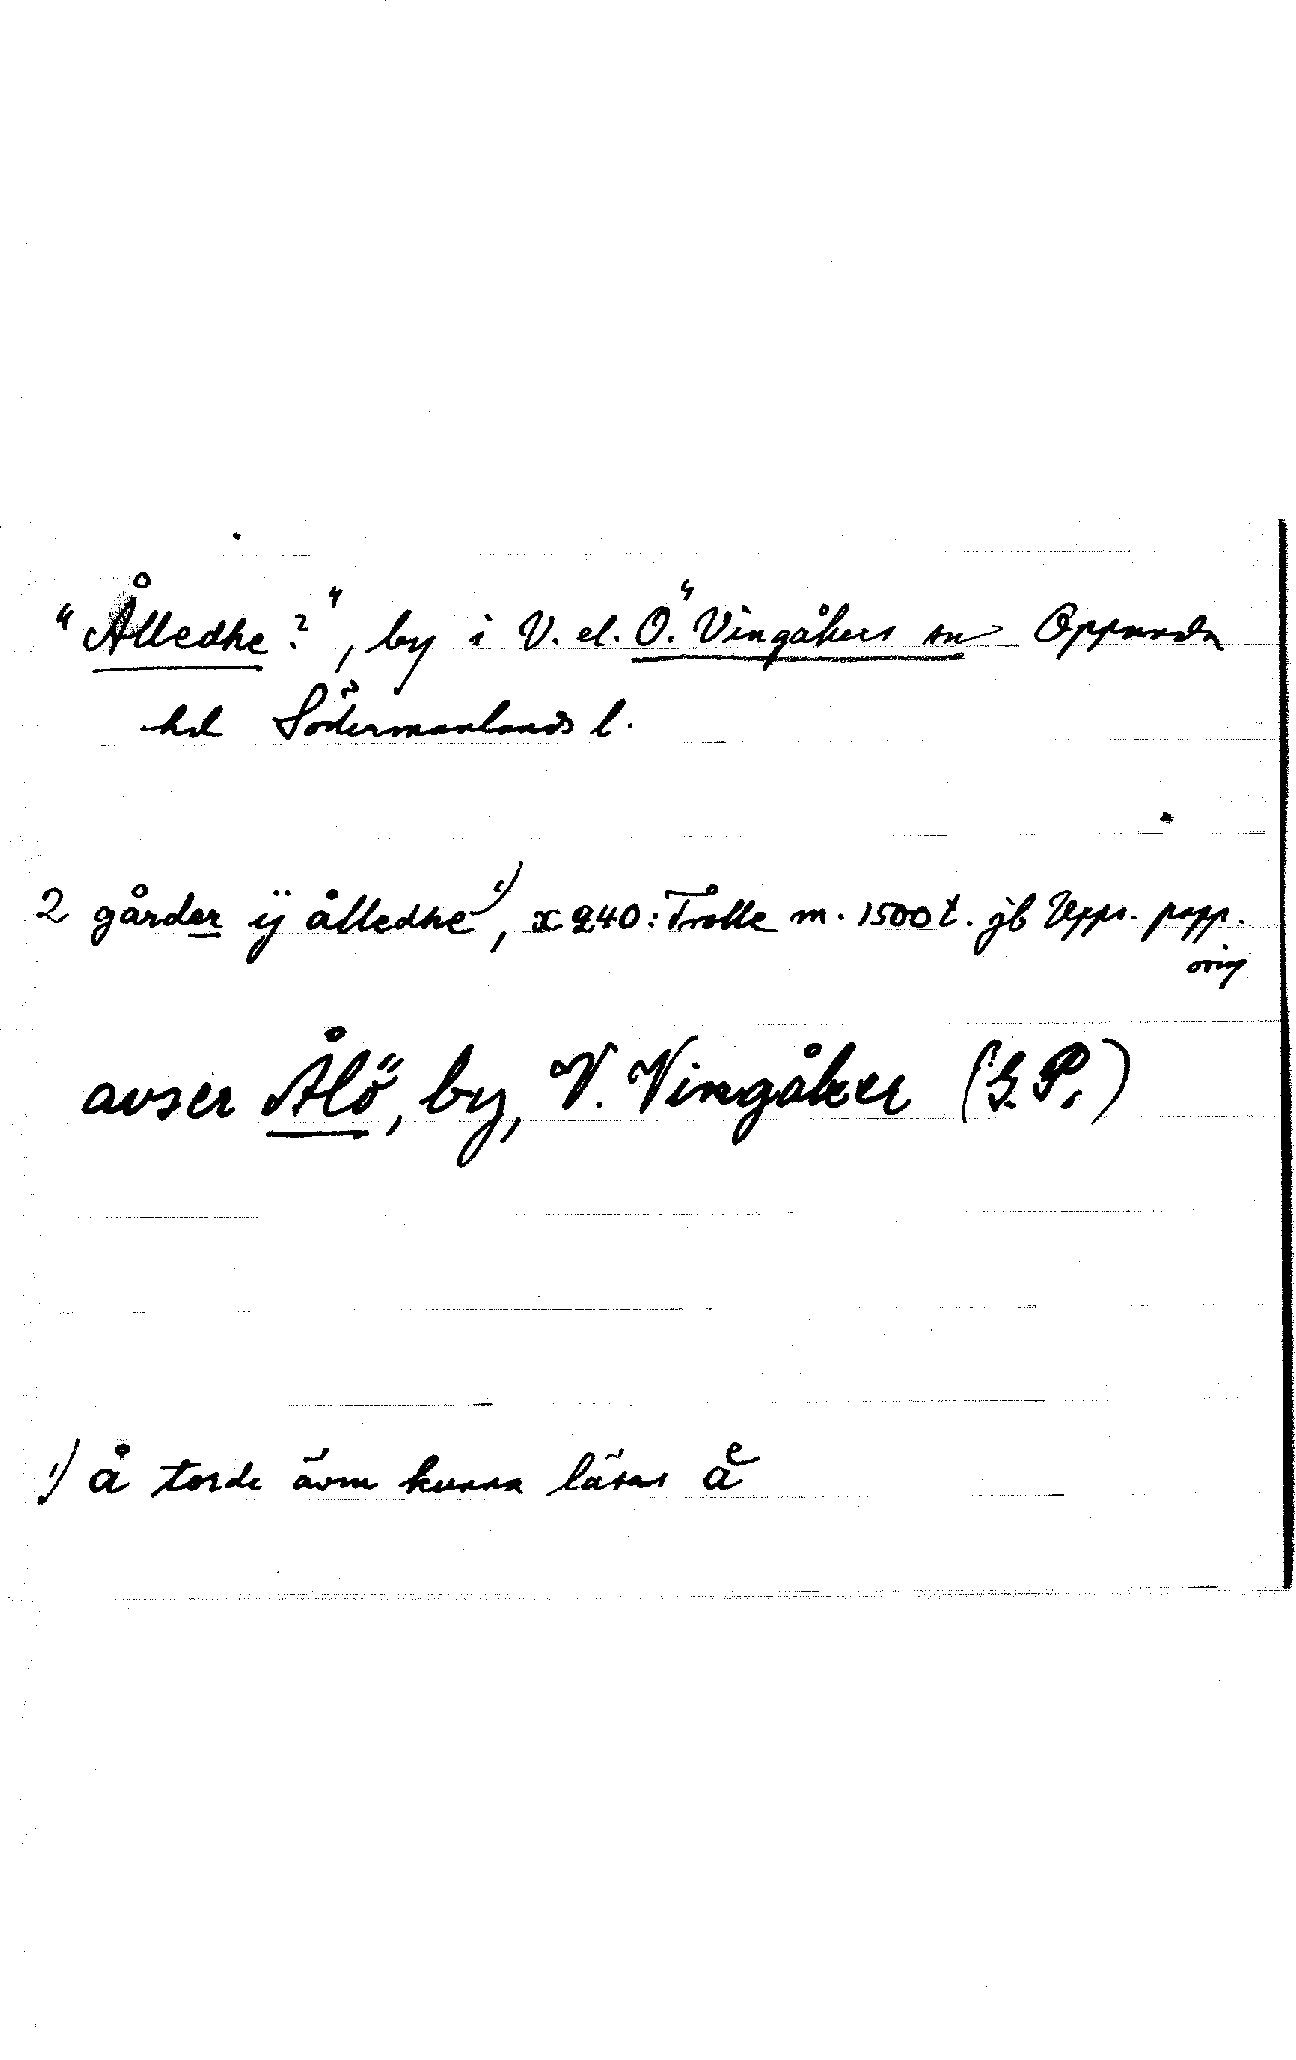 "Ålledhe?", by i V. el. Ö. Vingåkers sn Oppunda
hd Södermanlands l.
2 gårder ÿ ålledhe 1), x 240: Trolle m. 1500 t. jb Upps. papp.
orig
avser Ålö, by, V. Vingåker (G.P.)
1) å torde även kunna läsas aͤ